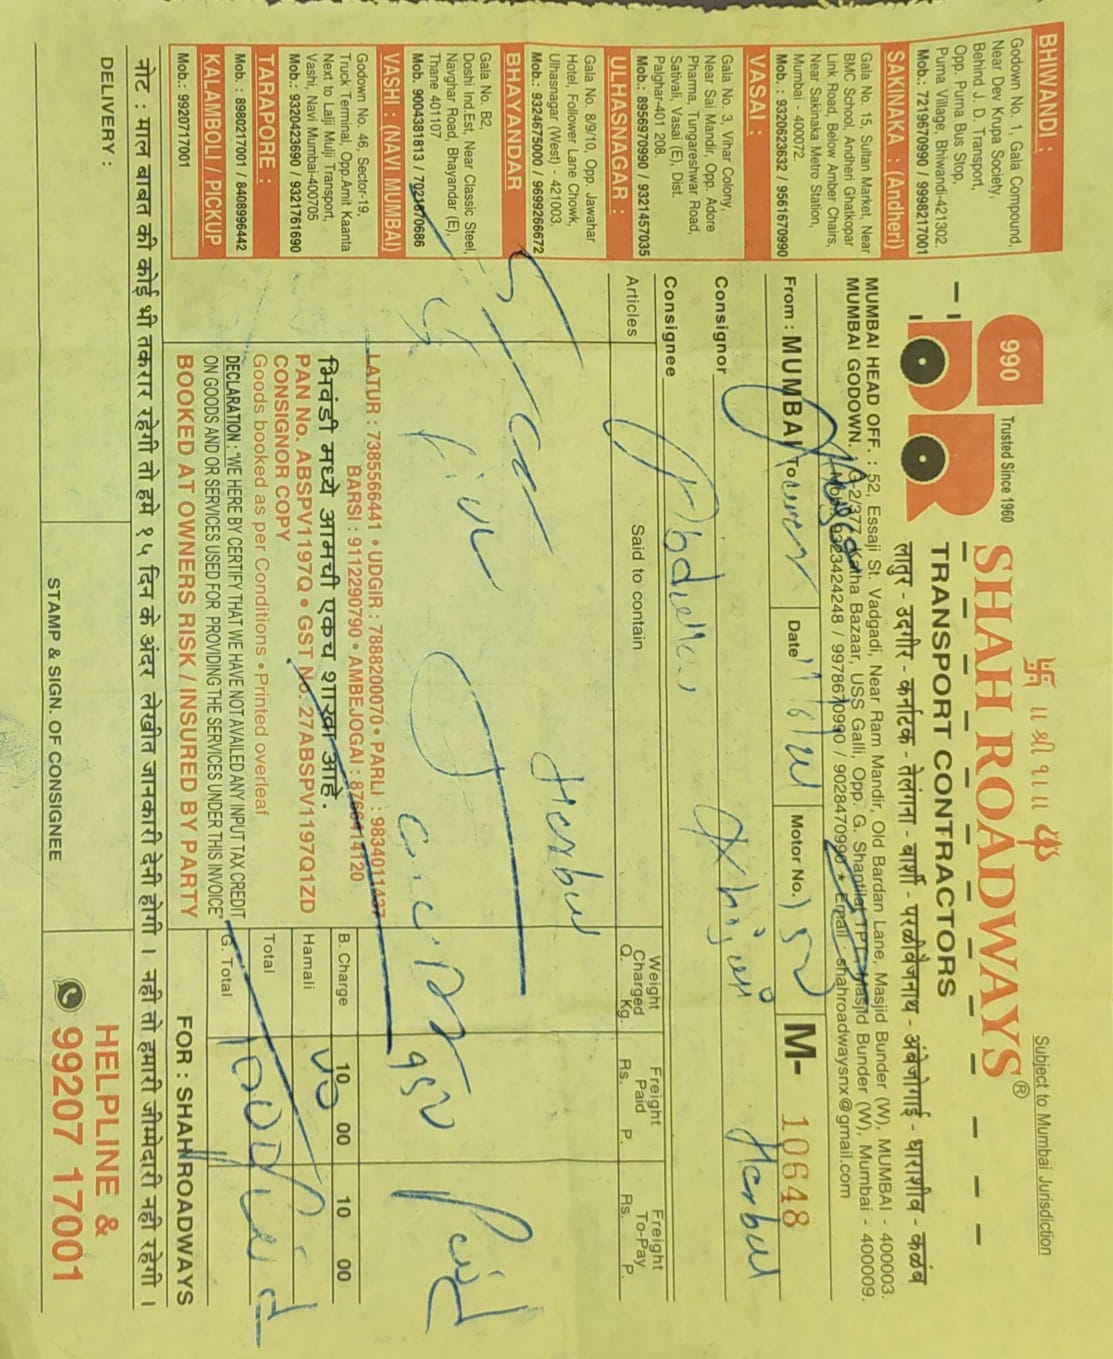 ॥ श्री १ ॥
Subject to Mumbai Jurisdiction
990
Trusted Since 1960
SHAH ROADWAYS®
TRANSPORT CONTRACTORS
लातुर - उदगीर - कर्नाटक - तेलंगना - बार्शी - परळीवैजनाथ - अंबेजोगाई - धाराशीव - कळंब
MUMBAI HEAD OFF. : 52, Essaji St. Vadgadi, Near Ram Mandir, Old Bardan Lane, Masjid Bunder (W), MUMBAI - 400003.
MUMBAI GODOWN. : G-2/377, Katha Bazaar, USS Galli, Opp. G. Shantilal TPT, Masjid Bunder (W), Mumbai - 400009.
9323424248 / 9978670990 / 9028470990 • Email : shahroadwaysnx@gmail.com
BHIWANDI :
Godown No. 1, Gala Compound,
Near Dev Krupa Society,
Behind J. D. Transport,
Opp. Purna Bus Stop,
Purna Village, Bhiwandi-421302.
Mob.: 7219670990 / 9998217001
SAKINAKA : (Andheri)
Gala No. 15, Sultan Market, Near
BMC School, Andheri Ghatkopar
Link Road, Below Amber Chairs,
Near Sakinaka Metro Station,
Mumbai - 400072.
Mob. : 9320623632 / 9561670990
VASAI :
Gala No. 3, Vihar Colony,
Near Sai Mandir, Opp. Adore
Pharma, Tungareshwar Road,
Sativali, Vasai (E), Dist.
Palghar-401 208.
Mob.: 8956970990 / 9321457035
ULHASNAGAR :
Gala No. 8/9/10, Opp. Jawahar
Hotel, Follower Lane Chowk,
Ulhasnagar (West) - 421003.
Mob.: 9324675000 / 9699266672
BHAYANDAR
Gala No. B2,
Doshi Ind.Est, Near Classic Steel,
Navghar Road, Bhayandar (E),
Thane 401107
Mob. 9004381813 / 7021870686
VASHI : (NAVI MUMBAI)
Godown No. 46, Sector-19,
Truck Terminal, Opp.Amit Kaanta
Next to Lalji Mulji Transport,
Vashi, Navi Mumbai-400705
Mob.: 9320423690 / 9321761690
TARAPORE :
Mob. : 8980217001 / 8408996442
KALAMBOLI / PICKUP
Mob.: 9920717001
From : MUMBAI To Date Motor No. M- 10648
Consignor Herbal
Consignee
Articles Said to contain Weight Charged Q. Kg. Freight Paid Rs. P. Freight To-Pay Rs. P.
Herbal
950 Paid
LATUR : 7385566441 • UDGIR : 7888200070 • PARLI : 9834011437
BARSI : 9112290790 • AMBEJOGAI : 8766414120
भिवंडी मध्ये आमची एकच शाखा आहे.
PAN No. ABSPV1197Q • GST No. 27ABSPV1197Q1ZD
CONSIGNOR COPY
Goods booked as per Conditions • Printed overleaf
DECLARATION : "WE HERE BY CERTIFY THAT WE HAVE NOT AVAILED ANY INPUT TAX CREDIT
ON GOODS AND OR SERVICES USED FOR PROVIDING THE SERVICES UNDER THIS INVOICE"
BOOKED AT OWNERS RISK / INSURED BY PARTY
B. Charge 10 00 10 00
Hamali
Total
G. Total
FOR : SHAH ROADWAYS
नोट : माल बाबत की कोई भी तकरार रहेगी तो हमे १५ दिन के अंदर लेखीत जानकारी देनी होगी । नही तो हमारी जीम्मेदारी नही रहेगी ।
DELIVERY :
STAMP & SIGN. OF CONSIGNEE
HELPLINE &
99207 17001